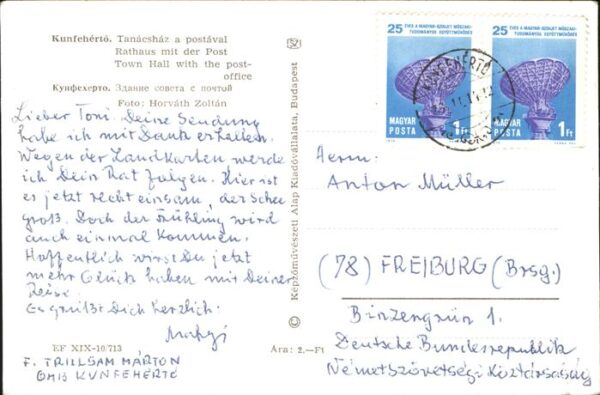 Kunfehértó. Tanácsház a postával
Rathaus mit der Post
Town Hall with the post-
office
Кунфехерто. Здание совета с почтой
Foto: Horváth Zoltán
Lieber Toni. Deine Sendung
habe ich mit Dank erhalten.
Wegen der Landkarten werde
ich Dein Rat folgen. Hier ist
es jetzt recht einsam, der Schnee
groß. Doch der Frühling wird
auch einmal kommen.
Hoffentlich wirst Du jetzt
mehr Glück haben mit Deiner
Reise
Es grüßt Dich herzlich:
EF XIX-10/713
Ára: 2.-Ft
F. TRILLSAM MÁRTON
KUNFEHÉRTÓ
Képzőművészeti Alap Kiadóvállalata, Budapest
25 ÉVES A MAGYAR-SZOVJET MŰSZAKI-
TUDOMÁNYOS EGYÜTTMŰKÖDÉS
MAGYAR
POSTA
1Ft
25 ÉVES A MAGYAR-SZOVJET MŰSZAKI-
TUDOMÁNYOS EGYÜTTMŰKÖDÉS
MAGYAR
POSTA
1Ft
KUNFEHÉRTÓ
Herrn:
Anton Müller
(78) FREIBURG (Brsg.)
Binzengrün 1.
Deutsche Bundesrepublik
Németszövetségi Köztársaság